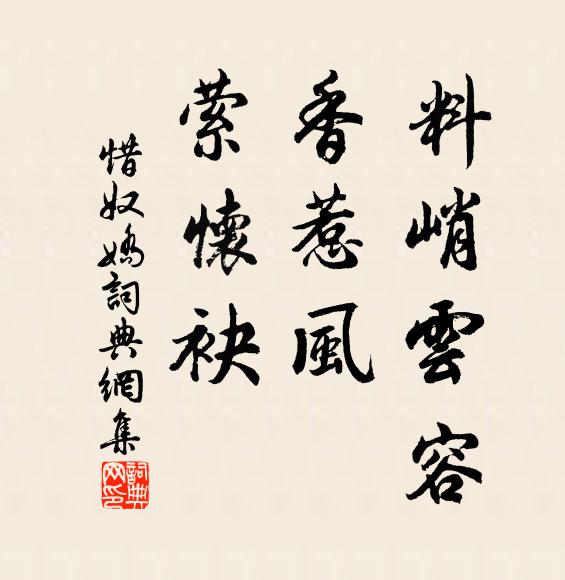 料峭雲容
香惹風
縈懷袂
惜奴嬌詞典網集
詞典网印